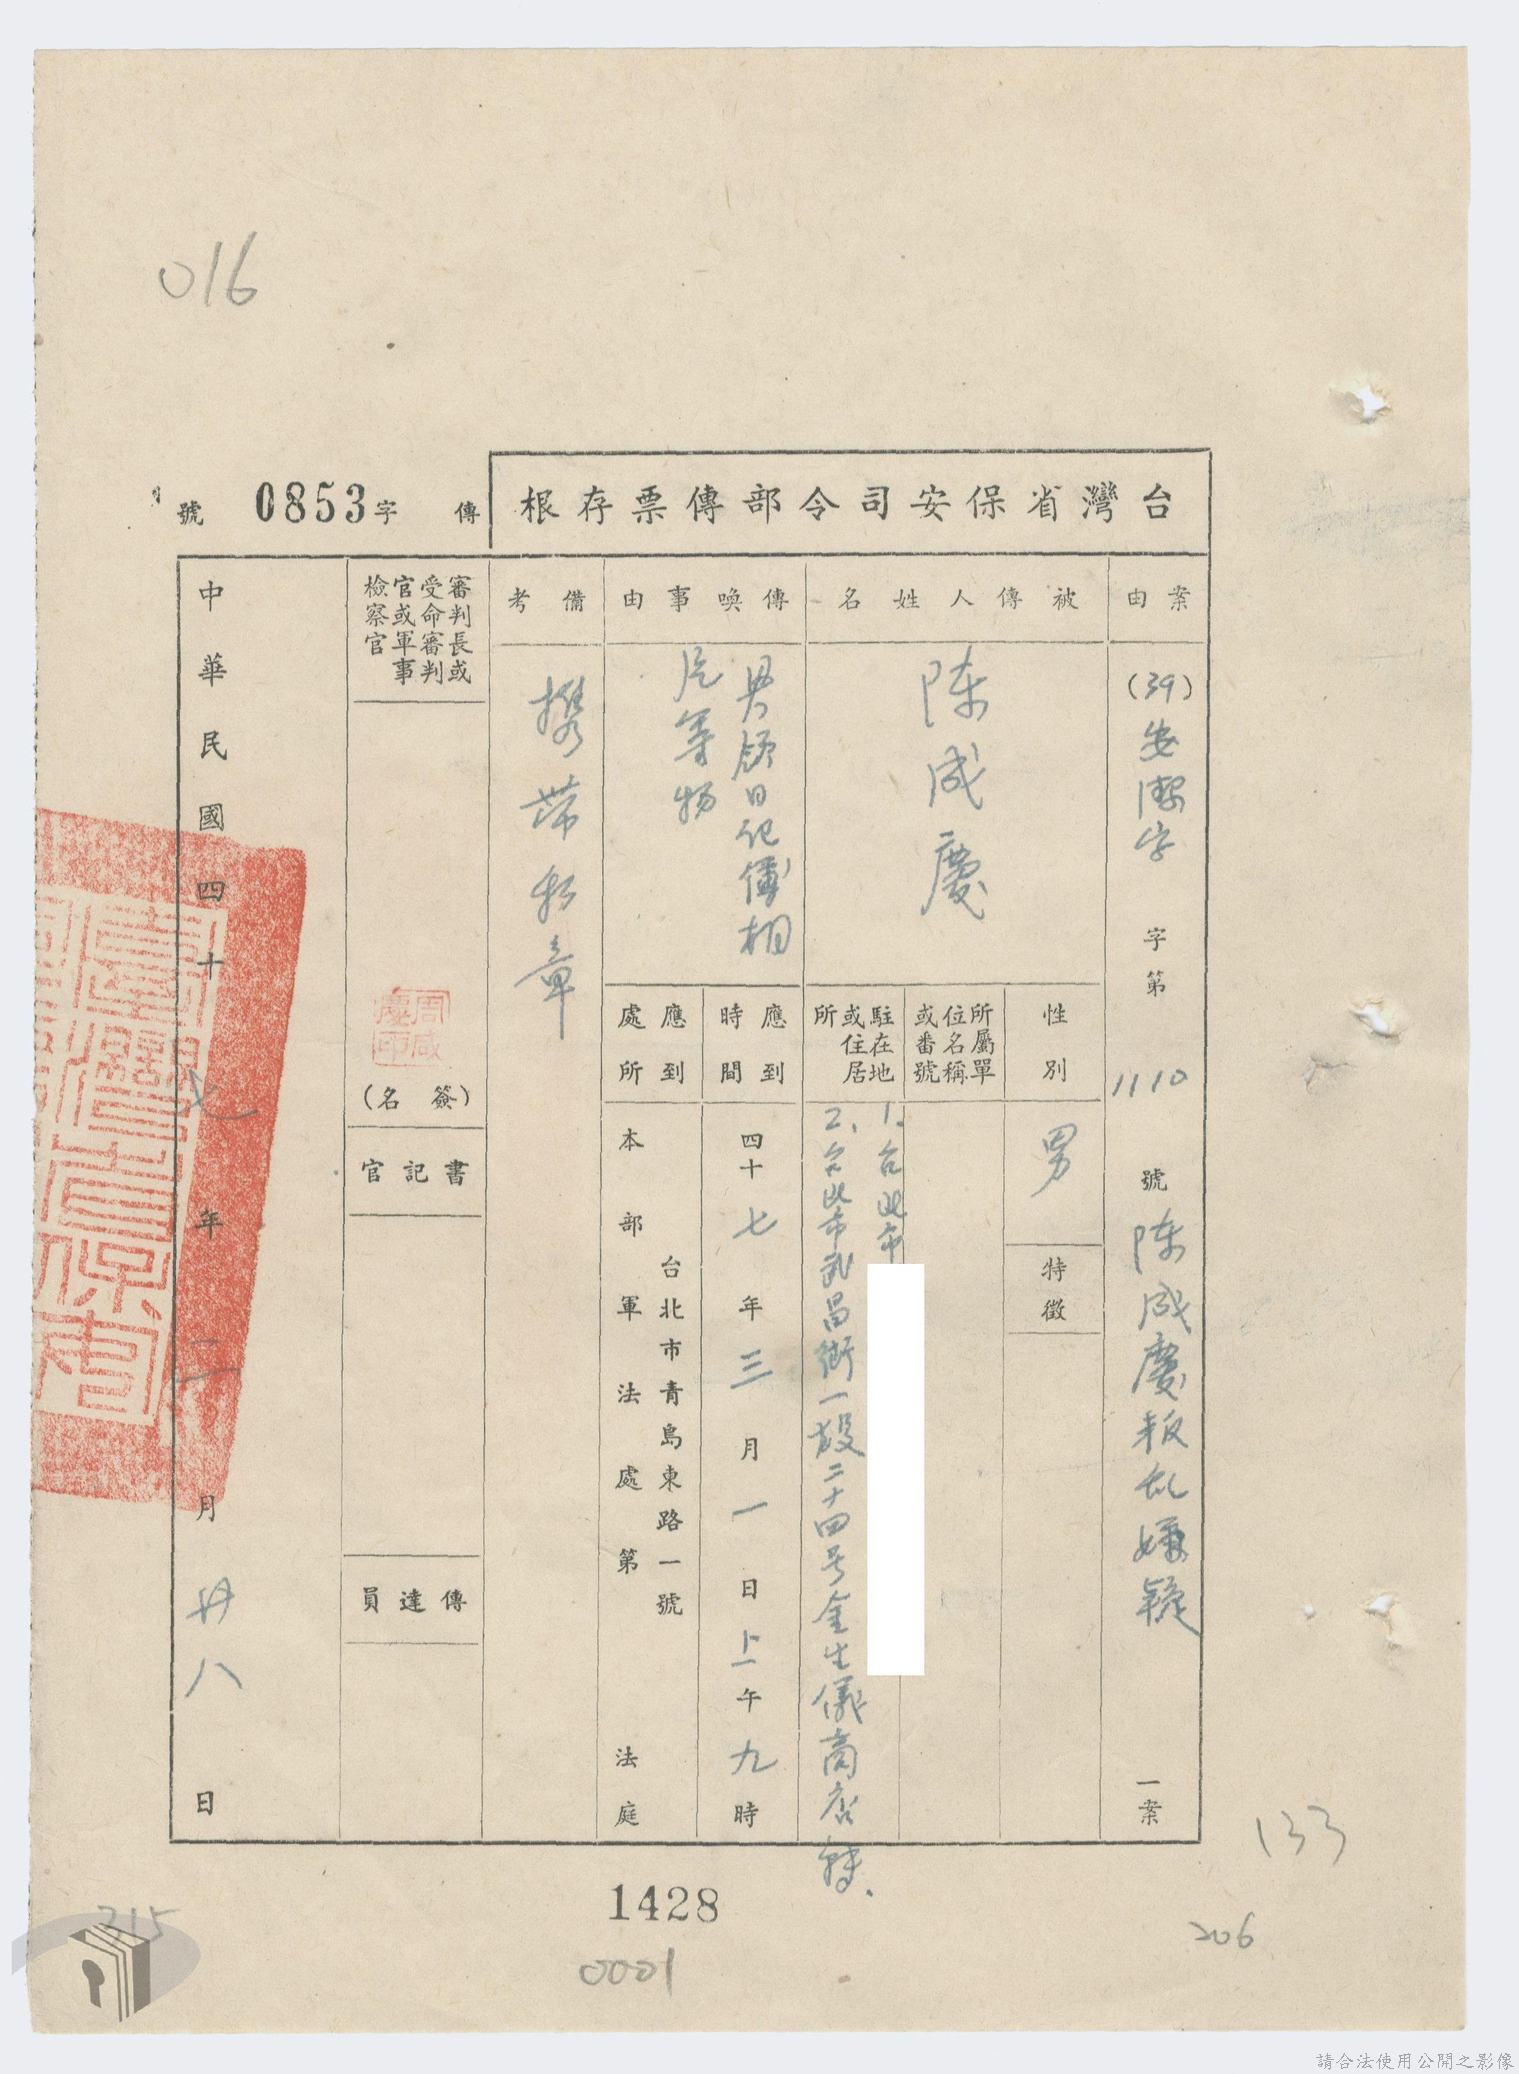 016
台灣省保安司令部傳票存根
傳 字 0853 號
案由
(39)安潔字 字第 1110 號 陈成慶叛乱嫌疑 一案
被傳人姓名
陈成慶
性別
男
特徵
所屬單
位名稱
或番號
駐在地
或住居
所
1.台北市
2、台北市武昌街一段二十四号金生儀商店轉.
傳喚事由
具領日记簿相
片等物
應到
時間
四十七年三月一日上午九時
應到
處所
台北市青島東路一號
本部軍法處第 法庭
備考
携带私章
審判長或
受命審判
官或軍事
檢察官
周咸
慶印
(簽名)
書記官
傳達員
中華民國四十七年二月廿八日
1428
0001
133
206
215
請合法使用公開之影像